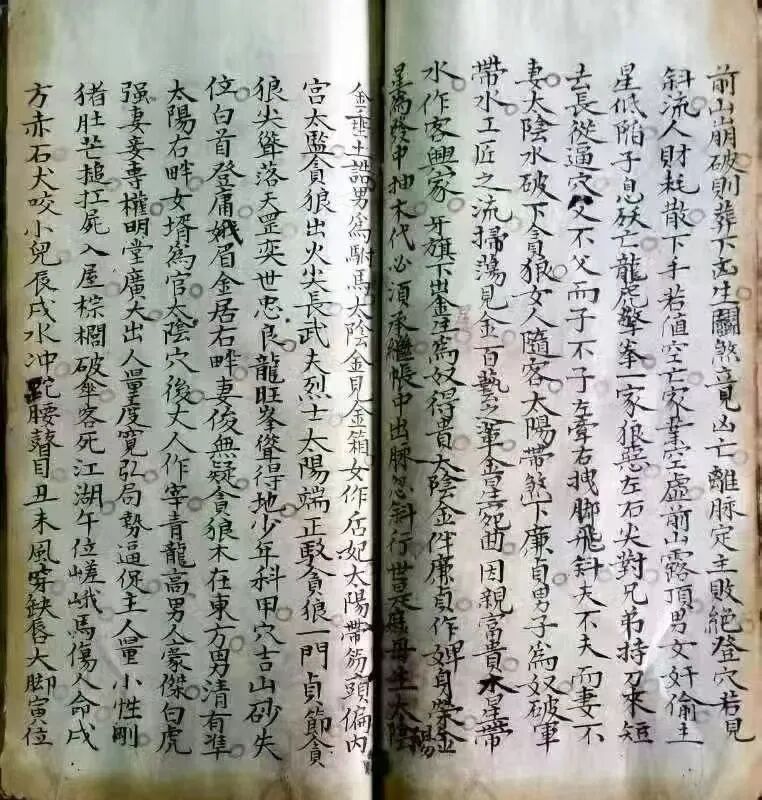 前山崩破則葬下出生關煞竟凶亡離脉定主敗絶登穴若見
斜流人財耗散下手若值空亡家業空虛前山露頂男女奸偷主
星低陷子息殀亡龍虎擎拳一家狼惡左右尖對兄弟持刀來短
去長從逼穴父不父而子不子左牽右拽脚飛斜夫不夫而妻不
妻太陰水破下貪狼女人隨客太陽帶煞下廉貞男子為奴破軍
帶水工匠之流掃蕩見金百藝之輩金星𦫵曲因親富貴水星帶
水作客興家牙旗下出金星為奴得貴太陰金伴廉貞作婢身榮金
星為發中抽木代必須承繼帳中出脉忽斜行世是庶母生太陰
陽
金垂土誥男為駙馬太陰金見金箱女作后妃太陽帶笏頭偏內
宮太監貪狼出火尖長武夫烈士太陽端正馭貪狼一門貞節貪
狼尖聳落天罡奕世忠良龍旺峯聳得地少年科甲穴吉山砂失
位白首登庸娥眉金居右畔妻後無疑貪狼木在東方男清有準
太陽右畔女壻為官太陰穴後丈人作宰青龍高男人豪傑白虎
强妻妾專權明堂廣大出人量度寬弘局勢逼促主人量小性剛
猪肚芒搥扛屍入屋棕櫚破傘客死江湖午位嵯峨馬傷人命戌
方赤石犬咬小兒辰戌水冲跎腰瞽目丑未風穿缺唇大脚寅位